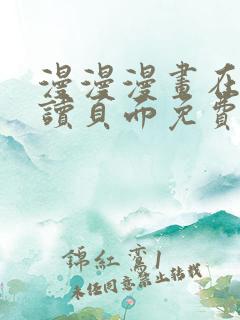 漫漫漫畫在
讀頁面免費
錦紅鸞1
未经同意禁止转载